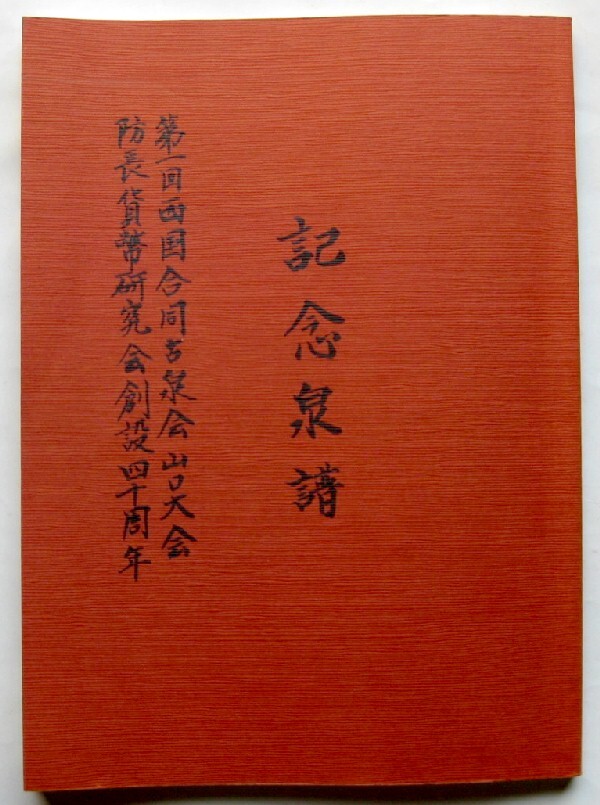 記念泉譜
第一回西国合同古泉会山口大会
防長貨幣研究会創設四十周年